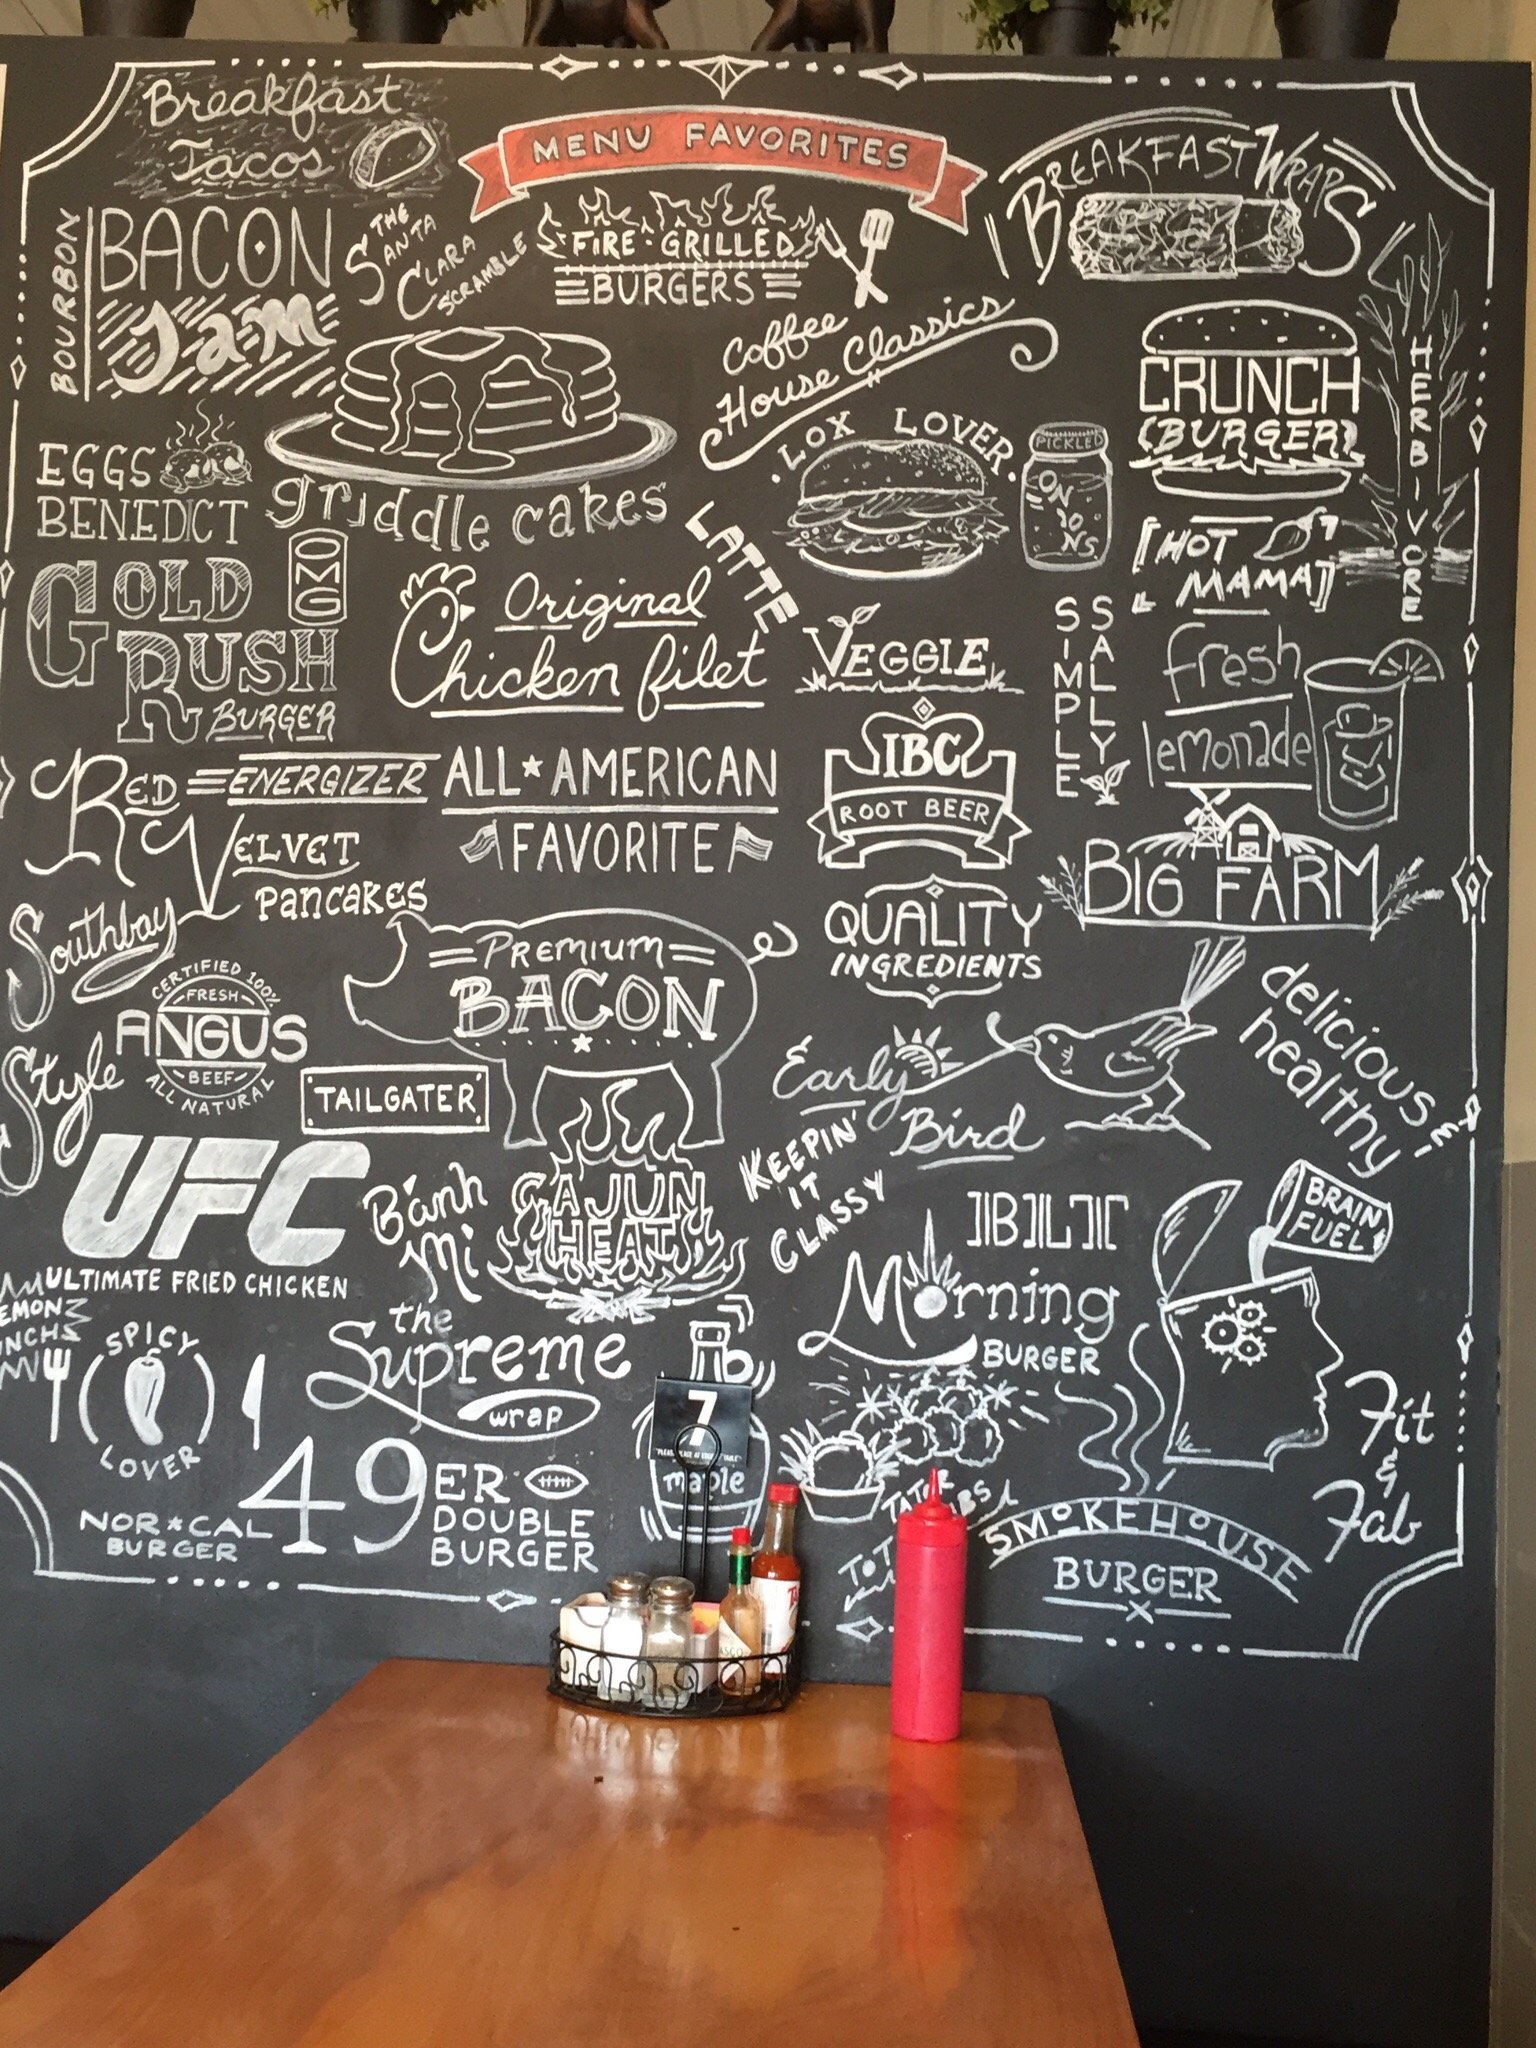 Breakfast
Tacos
MENU FAVORITES
BREAKFAST WRAPS
BOURBON
BACON
Jam
THE
SANTA
CLARA
SCRAMBLE
FIRE·GRILLED
BURGERS
Coffee
House Classics
CRUNCH
BURGER
HERBIVORE
EGGS
BENEDICT
griddle cakes
LOX LOVER
PICKLED
ONIONS
LATTE
HOT
MAMA
GOLD
RUSH
BURGER
OMG
Original
Chicken filet
VEGGIE
SIMPLE
SALLY
fresh
lemonade
RED
VELVET
PANCAKES
ENERGIZER
ALL★AMERICAN
FAVORITE
IBC
ROOT BEER
BIG FARM
Southbay
Style
CERTIFIED 100%
FRESH
ANGUS
BEEF
ALL NATURAL
PREMIUM
BACON
QUALITY
INGREDIENTS
TAILGATER
Early
Bird
delicious
healthy
UFC
ULTIMATE FRIED CHICKEN
Bánh
Mi
CAJUN
HEAT
KEEPIN'
IT
CLASSY
BLT
BRAIN
FUEL
Morning
BURGER
SPICY
LOVER
the
Supreme
wrap
7
maple
NOR★CAL
BURGER
49ER
DOUBLE
BURGER
TATER
SMOKEHOUSE
BURGER
Fit
&
Fab